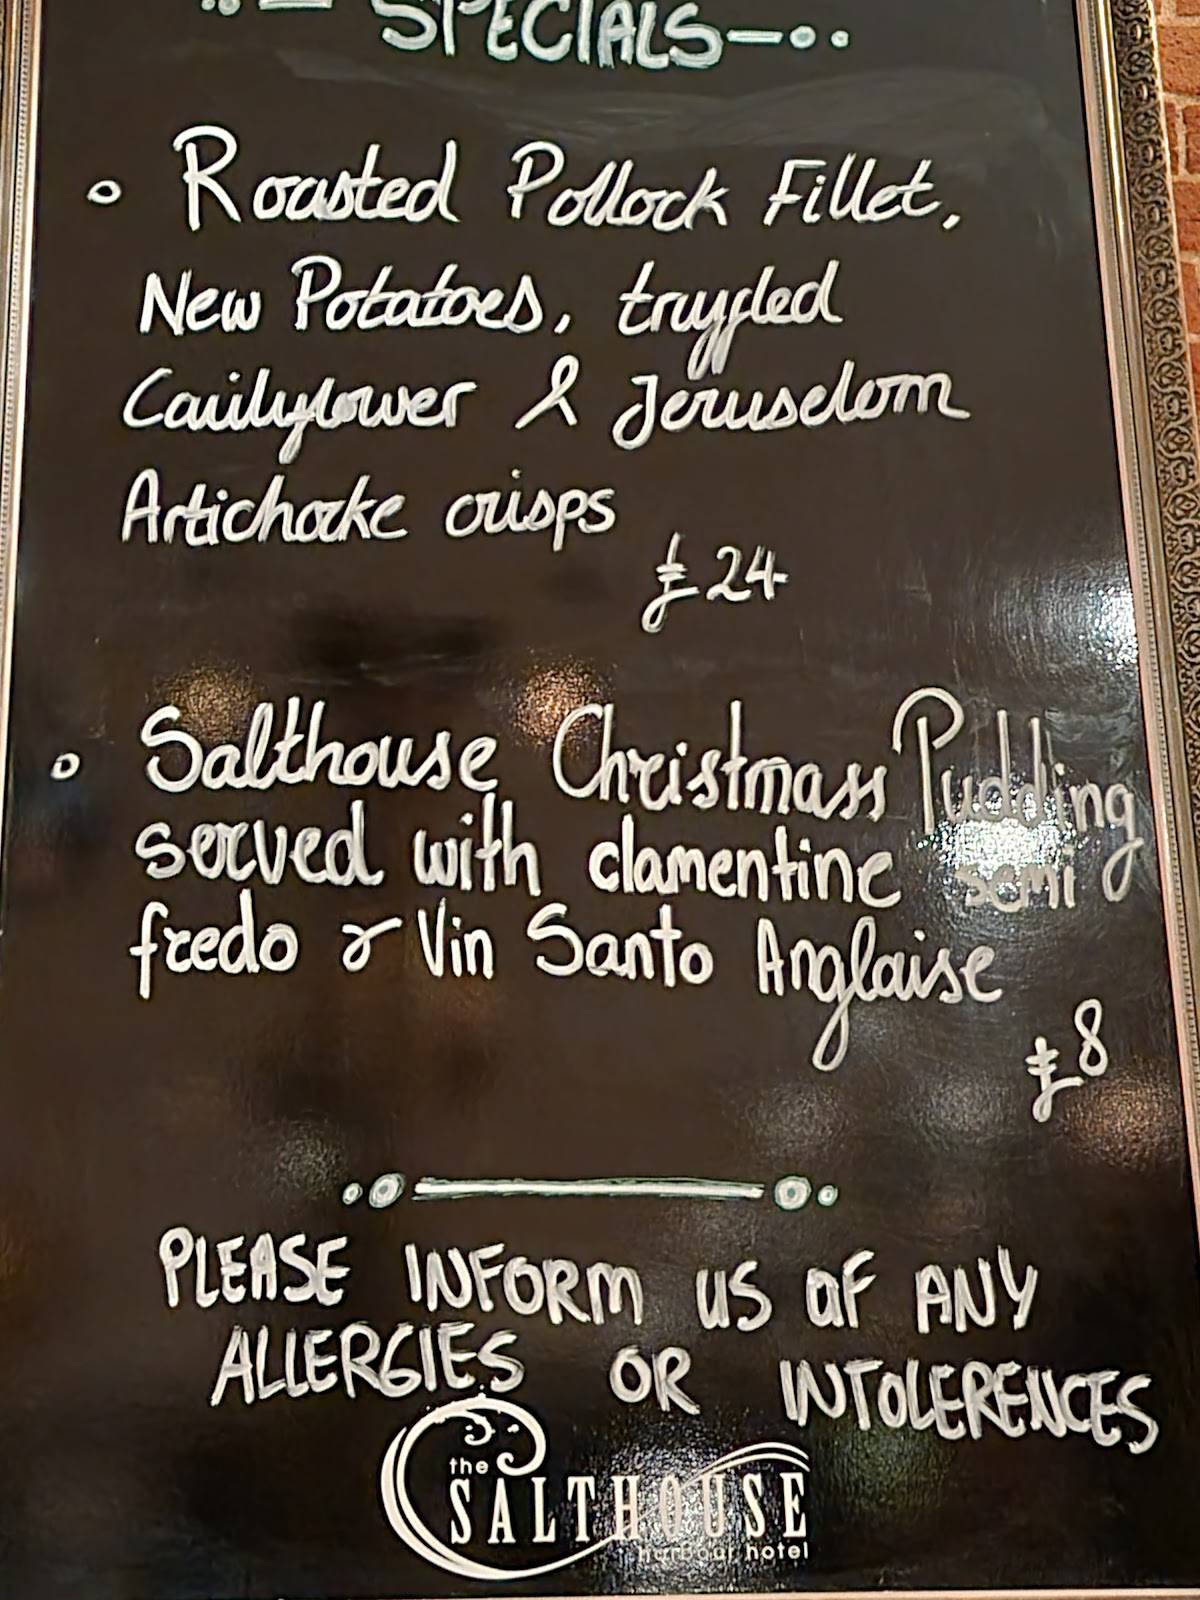 SPECIALS
Roasted Pollock Fillet,
New Potatoes, truffled
Cauilyflower & Jeruselom
Artichocke crisps
£24
Salthouse Christmass Pudding
served with clamentine semi
fredo & Vin Santo Anglaise
£8
PLEASE INFORM US OF ANY
ALLERGIES OR INTOLERENCES
the
SALTHOUSE
harbour hotel